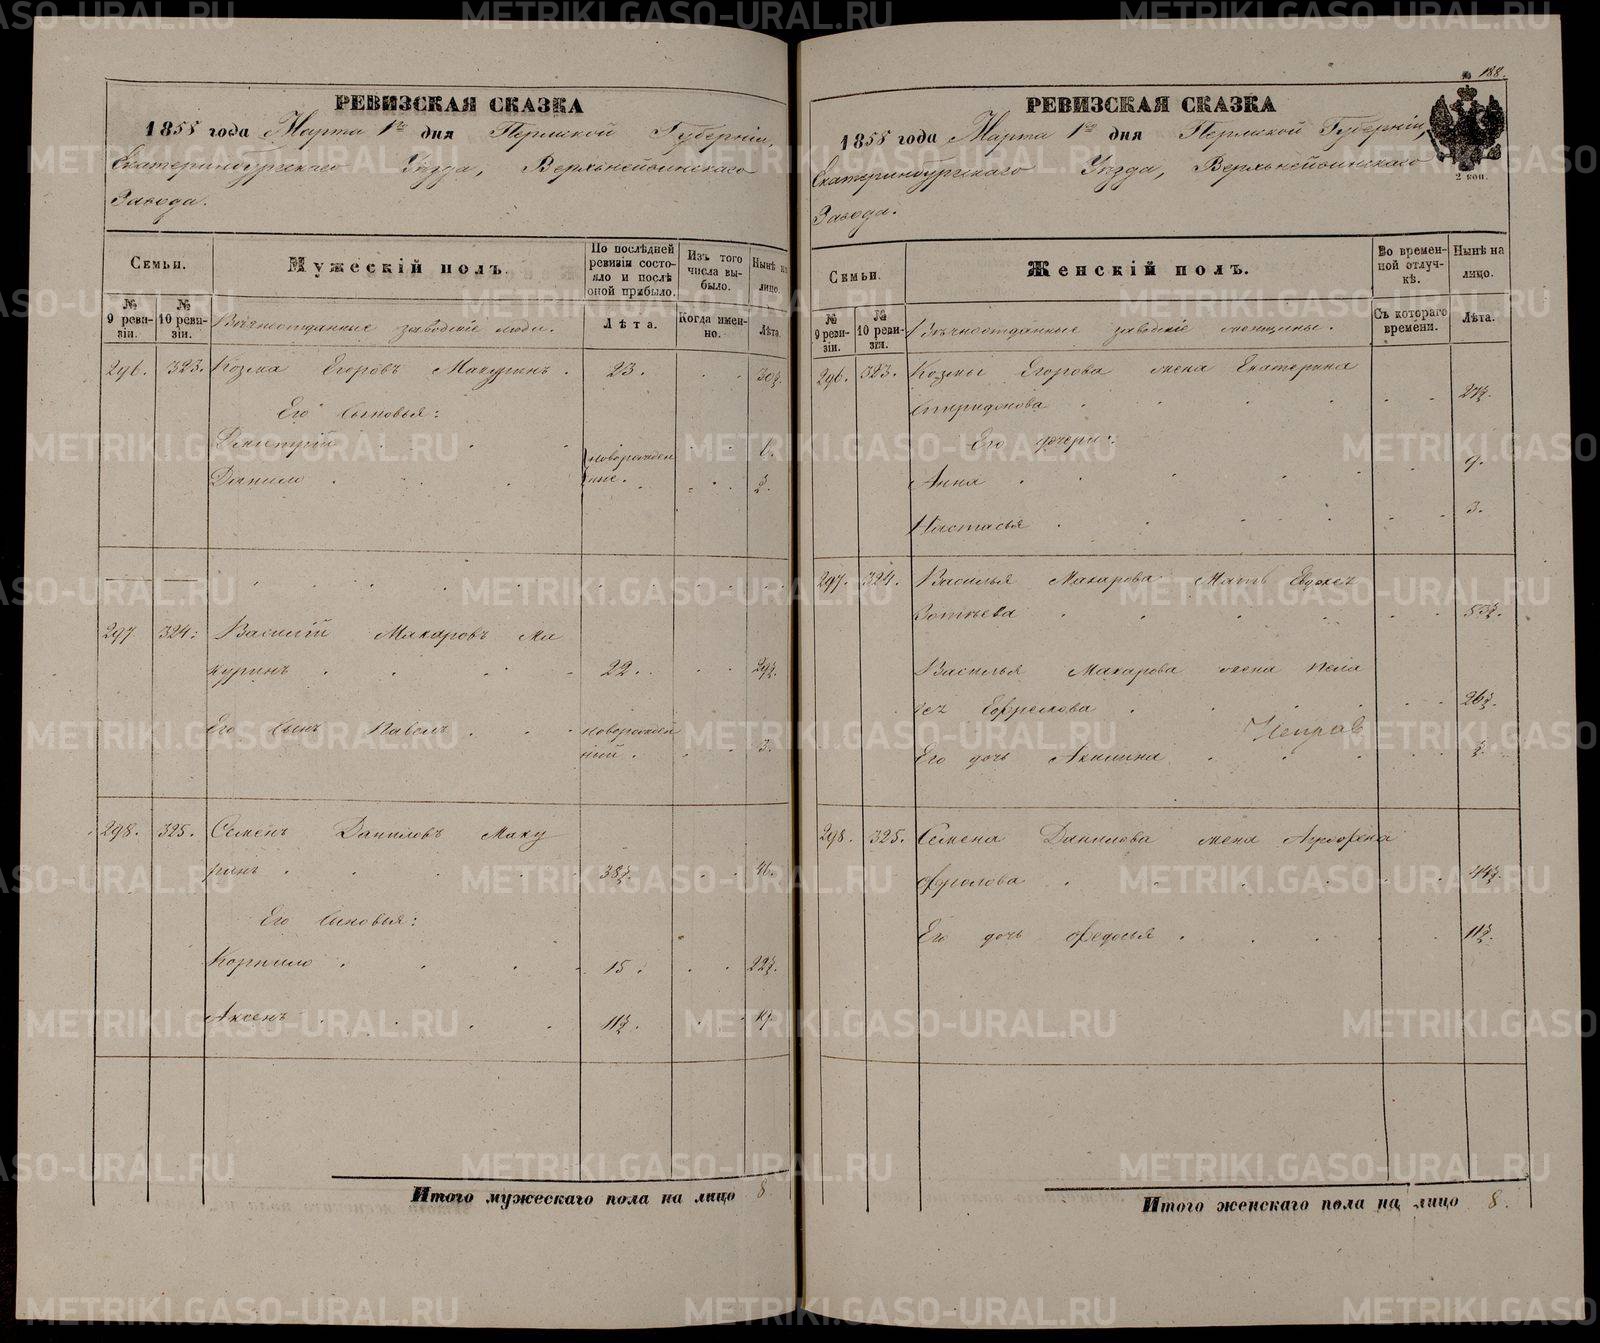 РЕВИЗСКАЯ СКАЗКА
1858 года Марта 1го дня Пермской Губерніи,
Екатеринбургскаго Уѣзда, Верхънейвинскаго
Завода.
Семьи.
Мужескій полъ.
По послѣдней ревизіи состояло и послѣ оной прибыло.
Изъ того числа выбыло.
Нынѣ на лицо.
№ 9 ревизіи.
№ 10 ревизіи.
Вѣчноотданные заводскіе люди.
Лѣта.
Когда именно.
Лѣта.
296. 323. Козма Егоровъ Макуринъ. 23. 30½
Его Сыновья:
Дмитрій
новорожден
Данило
ные. ½.
297 324. Василій Макаровъ Ма
куринъ 22. 29½.
Его Сынъ Павелъ новорожден
ный. 3.
298. 325. Семенъ Даниловъ Маку
ринъ 38½. 46.
Его Сыновья:
Корнило 15. 22½.
Аксенъ 11½. 19.
Итого мужескаго пола на лицо 8.
188.
РЕВИЗСКАЯ СКАЗКА
1858 года Марта 1го дня Пермской Губерніи,
Екатеринбургскаго Уѣзда, Верхънейвинскаго
Завода.
2 коп.
Семьи.
Женскій полъ.
Во временной отлучкѣ.
Нынѣ на лицо.
№ 9 ревизіи.
№ 10 ревизіи.
Вѣчноотданные заводскіе женщины.
Съ котораго времени.
Лѣта.
296. 323. Козмы Егорова жена Екатерина
Спиридонова 27½.
Его дочери:
Анна 9.
Настасья 3.
297. 324. Василья Макарова Мать
Зотѣева
Василья Макарова жена Пела
гея Ефремова 26½.
Его дочь Акилина ½.
298. 325. Семена Данилова жена Агрофена
Фролова 44½.
Его дочь Федосья 11½.
Итого женскаго пола на лицо 8.
METRIKI.GASO-URAL.RU